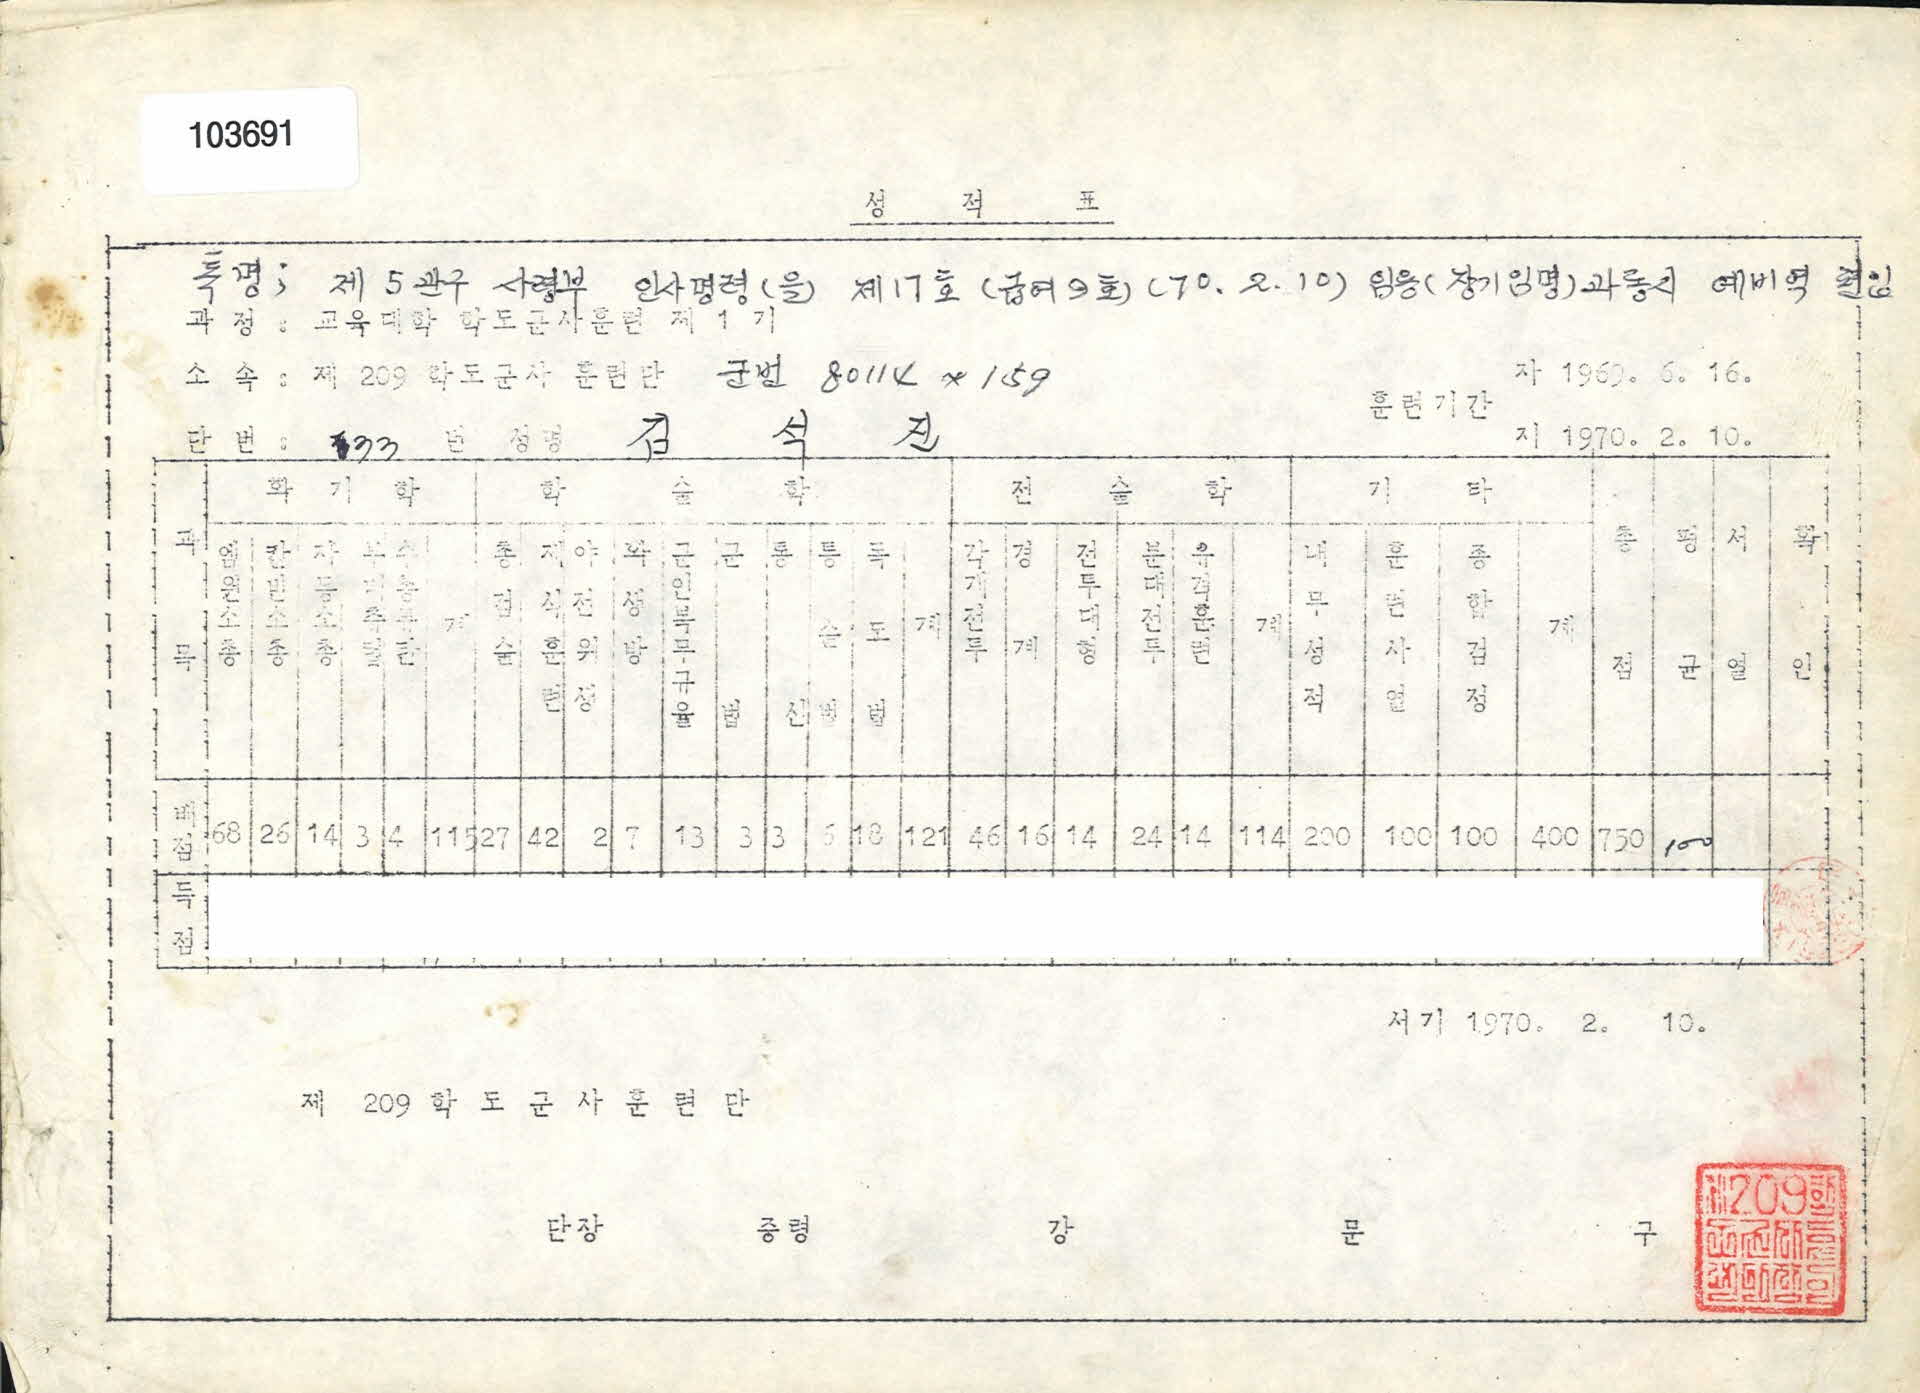 103691
성 적 표
특명; 제 5 관구 사령부 인사명령(을) 제17호 (급여 9호) (70. 2. 10) 임용(장기임명)과 동시 예비역 편입
과 정 : 교육대학 학도군사훈련 제 1 기
소 속 : 제 209 학도군사 훈련단 군번
훈련기간
자 1969. 6. 16.
지 1970. 2. 10.
단 번 : 번 성명 김 석 진
과 목 화 기 학 학 술 학 전 술 학 기 타 총 점 평 균 서 열 확 인
엠원소총 칸빈소총 자동소총 계 총검술 제식훈련 야전위생 화생방 군인복무규율 군법 통신 독도법 계 각개전투 경계 전투대형 분대전투 유격훈련 계 내무성적 훈련사열 종합검정 계
배점 68 26 14 3 4 115 27 42 2 7 13 3 3 6 18 121 46 16 14 24 14 114 200 100 100 400 750 100
득점
서기 1970. 2. 10.
제 209 학 도 군 사 훈 련 단
단장 중령 강 문 구